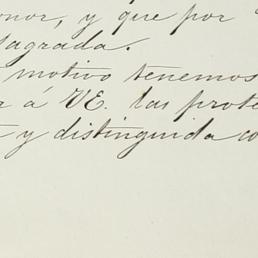 onor, y que por
sagrada.
motivo tenemos
r á VE. las prote
y distinguida co